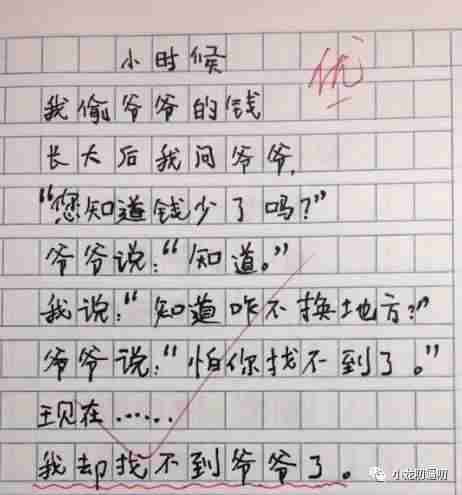 小时候
优
我偷爷爷的钱
长大后我问爷爷,
“您知道钱少了吗?”
爷爷说:“知道。”
我说:“知道咋不换地方?”
爷爷说:“怕你找不到了。”
现在……
我却找不到爷爷了。
小龙叨逼叨